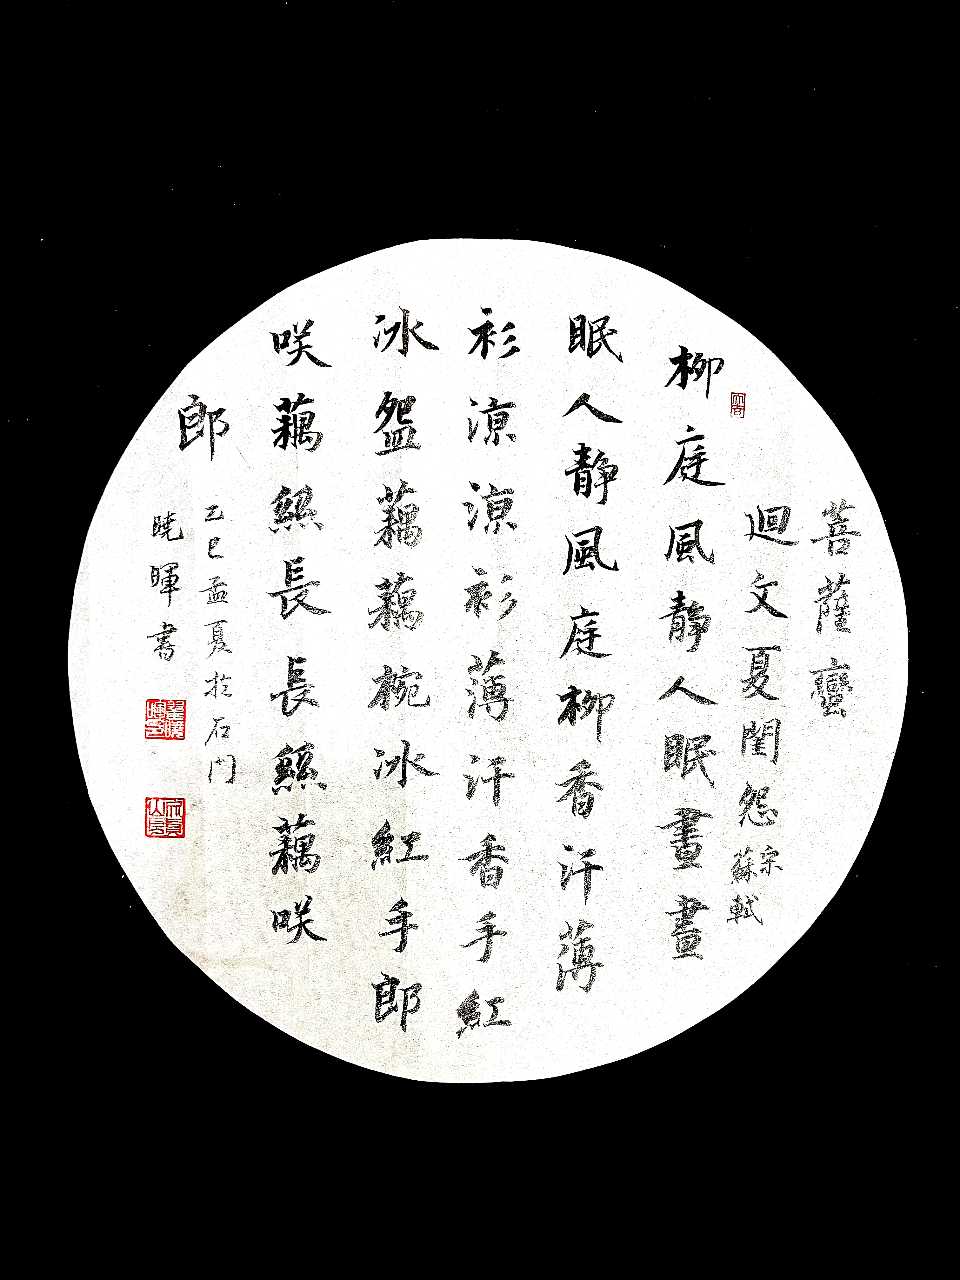 菩薩蠻
迴文夏閨怨
宋
蘇軾
柳庭風静人眠晝晝
眠人静風庭柳香汗薄
衫涼涼衫薄汗香手紅
冰盌藕藕椀冰紅手郎
咲藕絲長長絲藕咲
郎
乙巳孟夏於石门
曉暉書